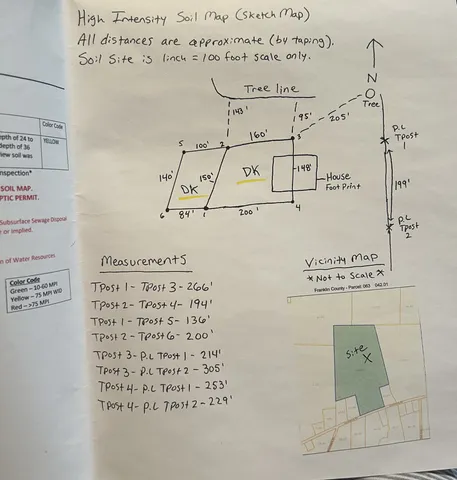 High Intensity Soil Map (Sketch Map)
All distances are approximate (by taping).
Soil Site is 1inch = 100 foot scale only.
N
Tree line
Tree
143'
95'
205'
P.L
TPost
1
5
100'
2
160'
3
140'
150'
DK
DK
148'
House
Foot Print
199'
6
84'
1
200'
4
P.L
TPost
2
Measurements
TPost 1 - TPost 3 - 266'
TPost 2 - TPost 4 - 194'
TPost 1 - TPost 5 - 136'
TPost 2 - TPost 6 - 200'
TPost 3 - P.L TPost 1 - 214'
TPost 3 - P.L TPost 2 - 305'
TPost 4 - P.L TPost 1 - 253'
TPost 4 - P.L TPost 2 - 229'
Vicinity Map
*Not to Scale*
Franklin County - Parcel: 063 042.01
Site
X
Color Code
depth of 24 to
YELLOW
depth of 36
view soil was
nspection*
SOIL MAP.
PTIC PERMIT.
Subsurface Sewage Disposal
or implied.
n of Water Resources
Color Code
Green – 10-60 MPI
Yellow – 75 MPI WD
Red – >75 MPI